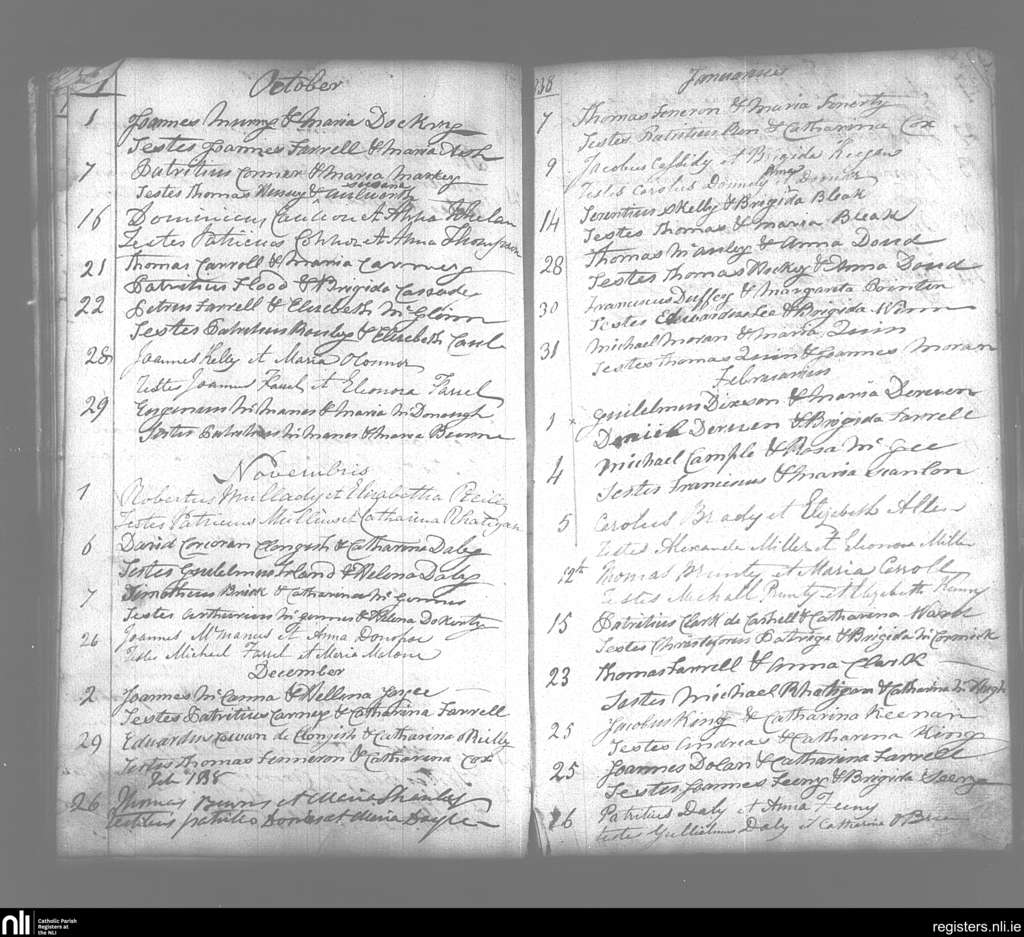 October
1 Joannes Murry & Maria Dockry
Testes Joannes Farrell & Maria
7 Patritius Connor & Maria Markey
Testes Thomas & Susana
16 Dominicus et Anna Whelan
Testes Patricius Connor et Anna Thompson
21 Thomas Carroll & Maria Carney
Patritius Flood & Brigida
22 Petrus Farrell & Elizabeth McGlinn
Testes Patritius & Elizabeth
28 Joannes Kelly et Maria O'Connor
Testes Joannes Farrel et Eleonora Farrel
29 McManus & Maria McDonough
Testes Patritius McManus & Maria Beirne
Novembris
1 Robertus Mullady et Elizabetha Reilly
Testes Patricius Mullin et Catharina Rhatigan
6 David Corcoran Clongish & Catharina Daly
Testes Guilelmus Ireland & Helena Daly
7 Timotheus Brick & Catharina
Testes Arthurius & Helena Dokerty
26 Joannes McManus et Anna Donohoe
Testes Micheal Farrel et Maria Malone
December
2 Joannes McCanna & Hellena Joyce
Testes Patritius Carney & Catharina Farrell
29 Eduardus Cowan de Clongish & Catharina O Reilly
Testes Thomas Fenneron & Catharina Cox
Feb 1838
26 Thomas Burns et Maria Shanly
Patritio et Maria
1838
Januarius
7 Thomas Feneron & Maria Finerty
Testes Patritius & Catharina Cox
9 Jacobus Cassidy et Brigida Keegan
Testes Carolus Donnely et
14 Terentius Skelly & Brigida Bleak
Testes Thomas & Maria Bleak
28 Thomas Manley & Anna Doud
Testes Thomas Hicky & Anna Doud
30 Franciscus Duffey & Margarita
Testes Edwardus Lee & Brigida Winn
31 Michael Moran & Maria Quin
Testes Thomas Quin & Joannes Moran
Februarius
1 × Guilelmus Dixson & Maria Derwen
Daniel Derwen & Brigida Farrell
4 Michael Cample & Rosa McGee
Testes Franciscus & Maria Scanlon
5 Carolus Brady et Elizabeth Allen
Testes Alexander Miller et Eleonora Miller
12th Thomas Brunty et Maria Carroll
Testes Michall Runty et Elizabeth Kenny
15 Patritius Clark de Cashell & Catharina Ward
Testes Christophorus Patrige & Brigida McCormick
23 Thomas Farrell & Anna Clark
Testes Michael Rhatigan & Catharina McHugh
25 Jacobus King & Catharina Keenan
Testes Andreas & Catharina King
25 Joannes Dolan & Catharina Farrell
Testes Joannes Feeny & Brigida
26 Patritius Daly et Anna Feeny
Testes Gulielmus Daly et Catharine O'Brien
nli Catholic Parish
Registers at
the NLI
registers.nli.ie